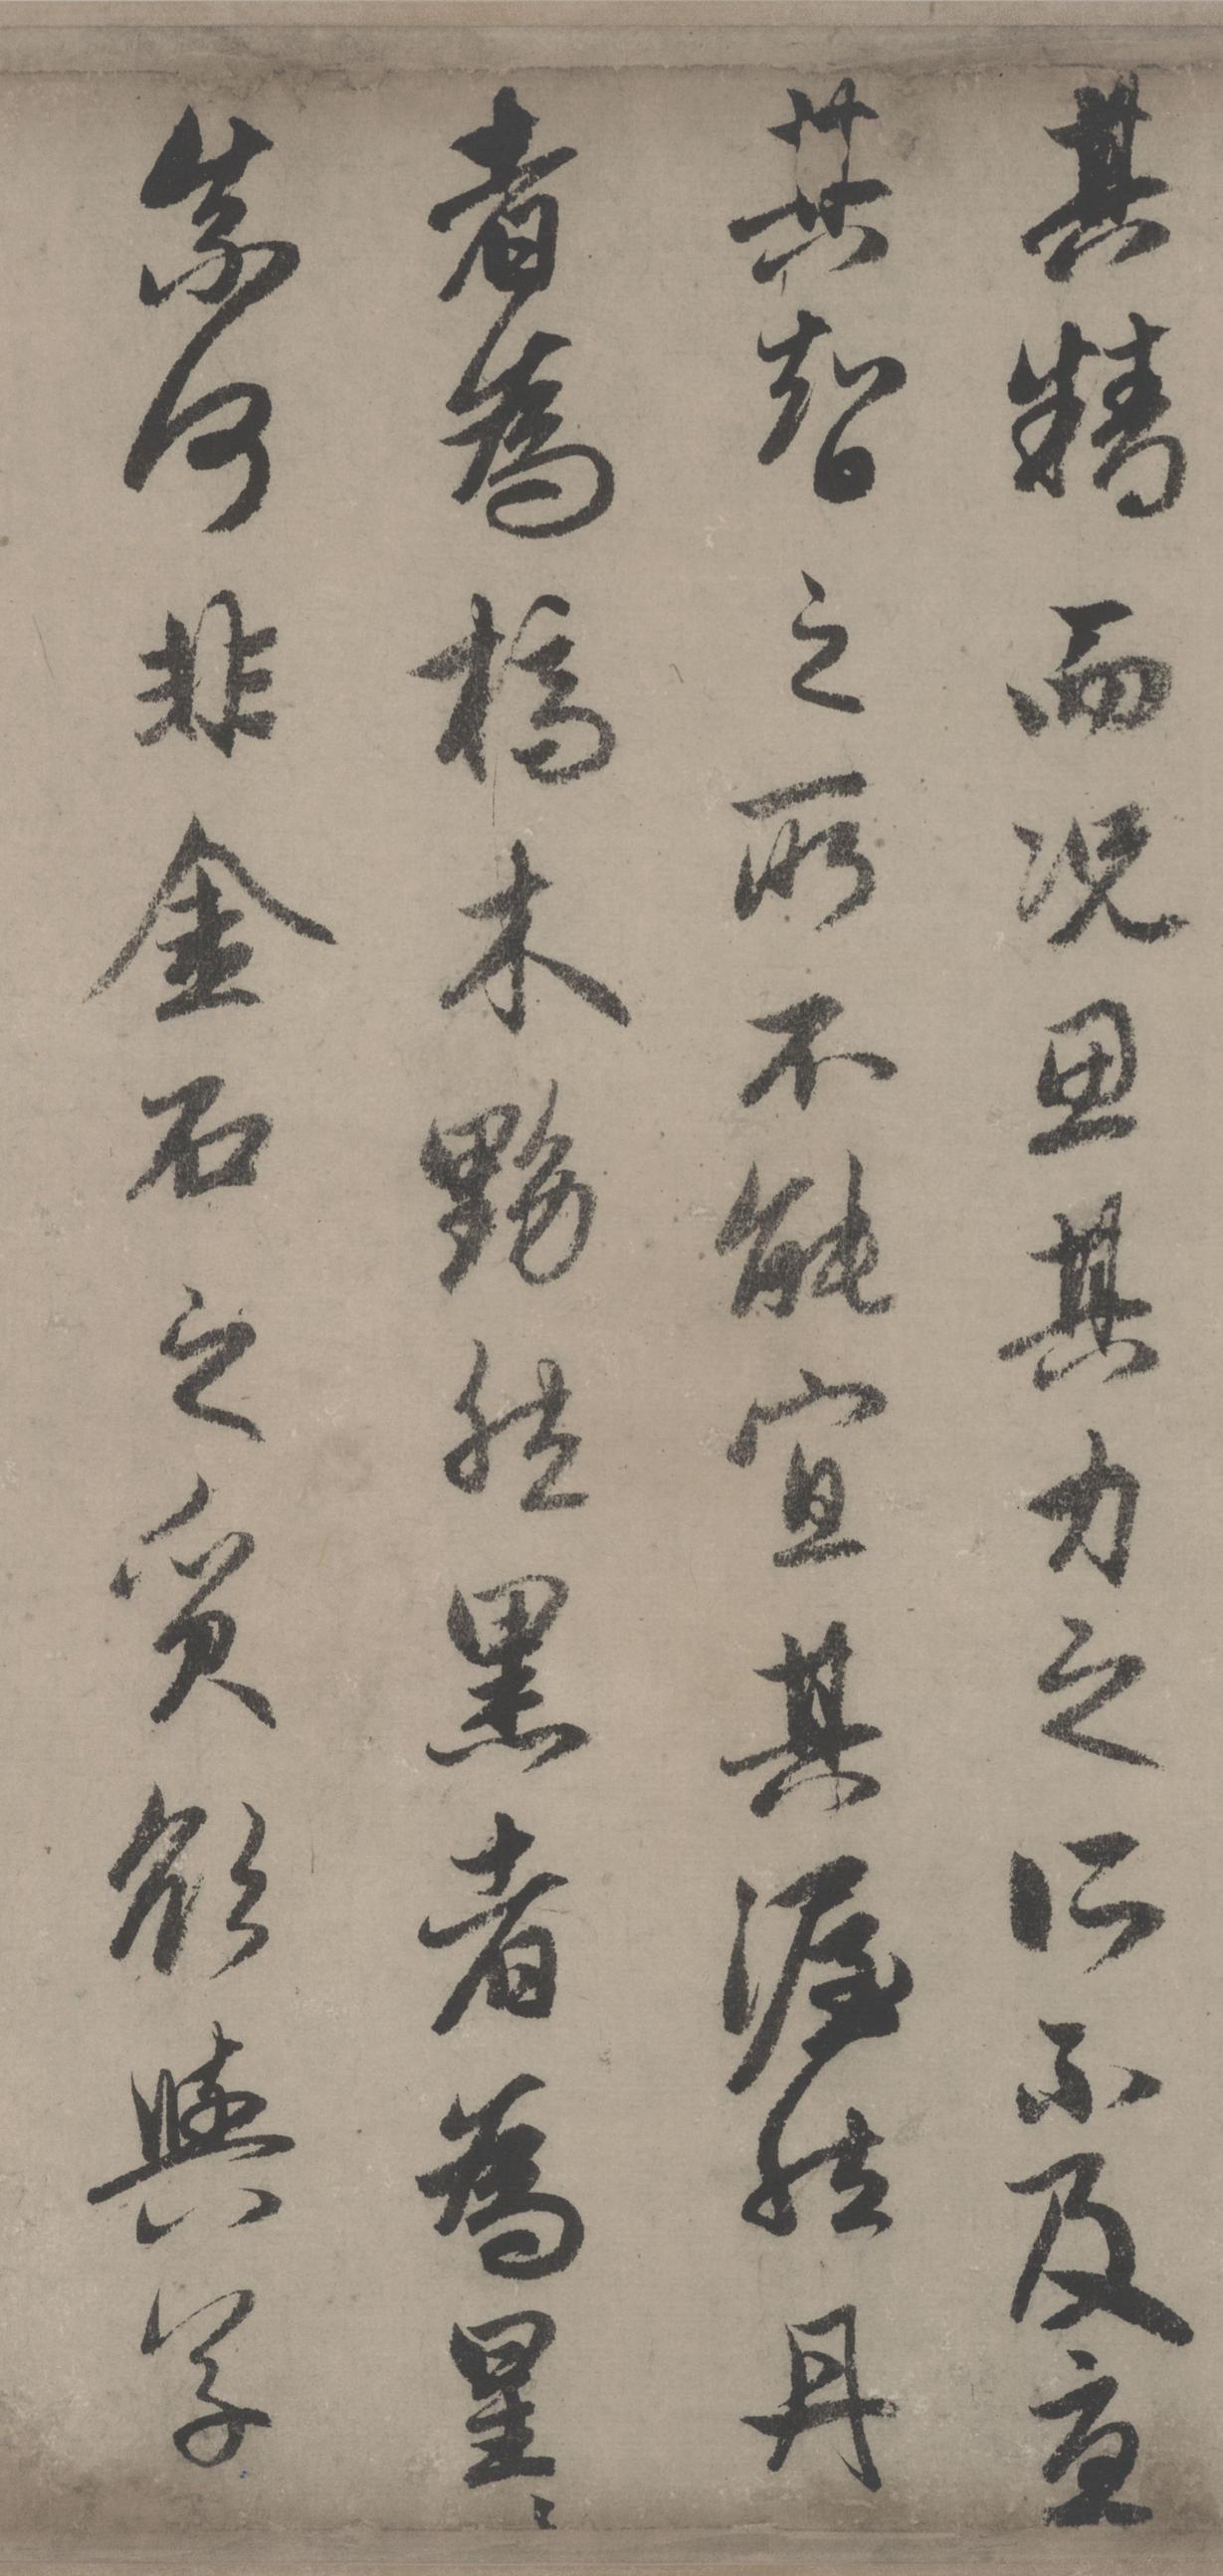 其精而况思其力之所不及憂
其智之所不能宜其渥然丹
者為槁木黟然黑者為星〻
奈何非金石之質欲與草